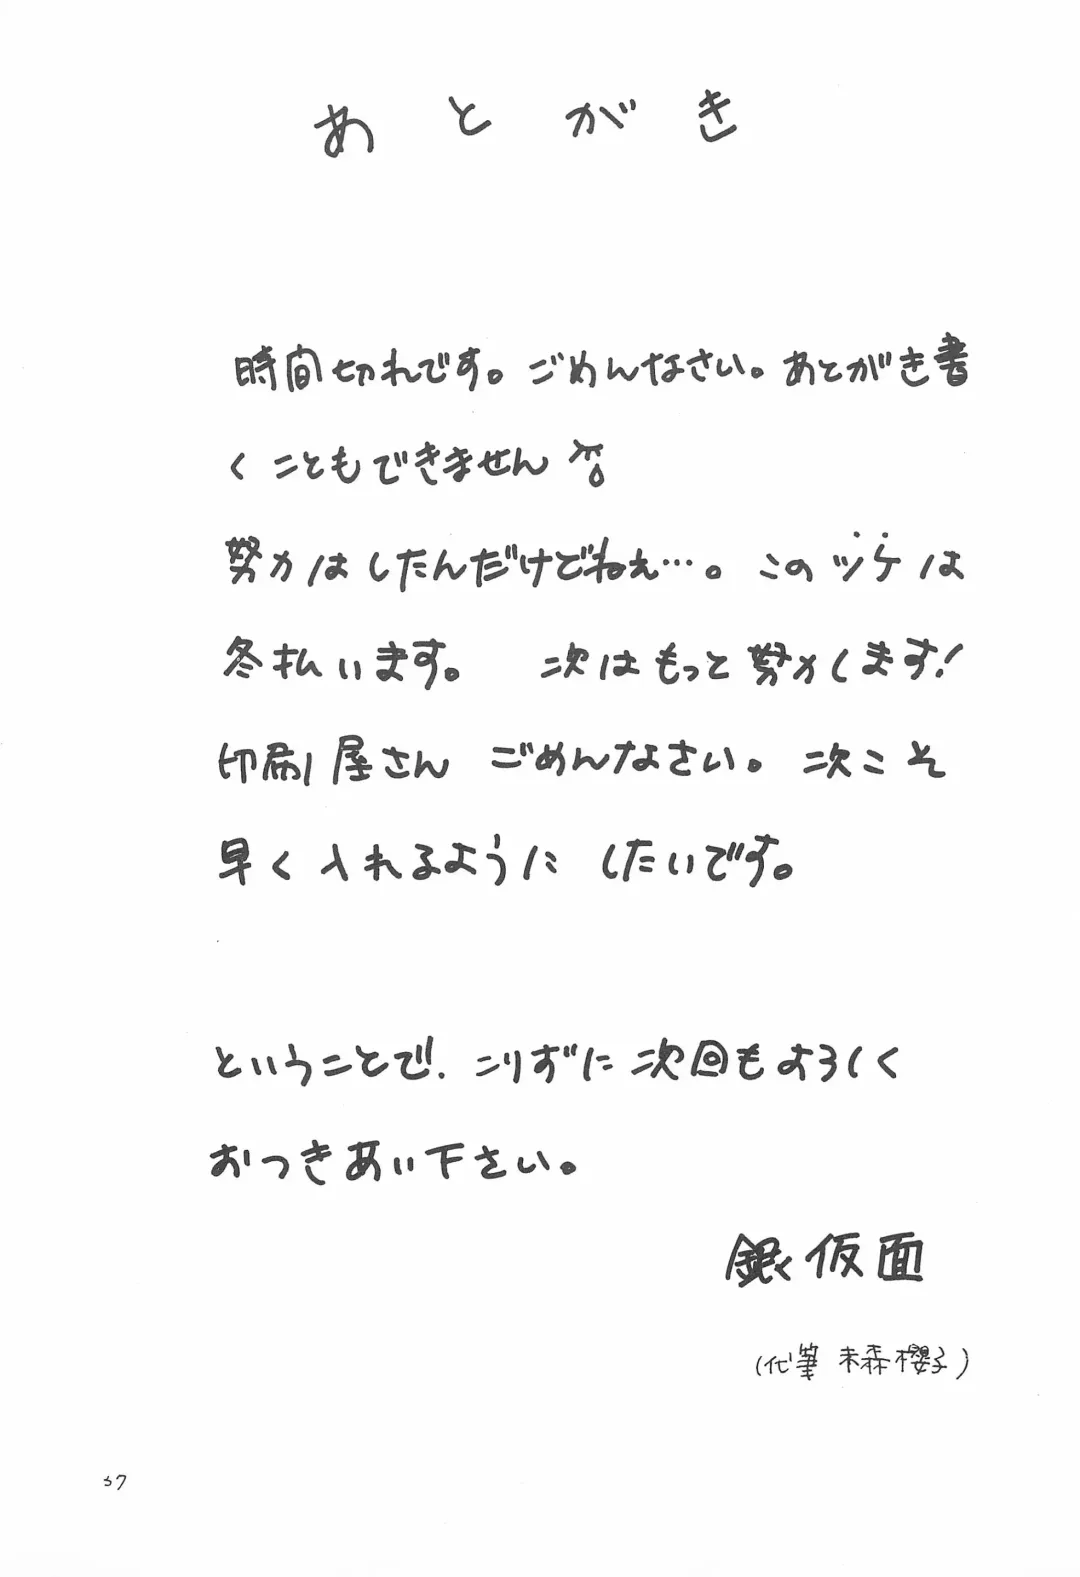 あとがき
時間切れです。ごめんなさい。あとがき書
くこともできません
努力はしたんだけどねぇ…。このツケは
冬払います。 次はもっと努力します!
印刷屋さん ごめんなさい。次こそ
早く入れるように したいです。
ということで、こりずに次回もよろしく
おつきあい下さい。
銀仮面
(代筆 未森櫻子)
37